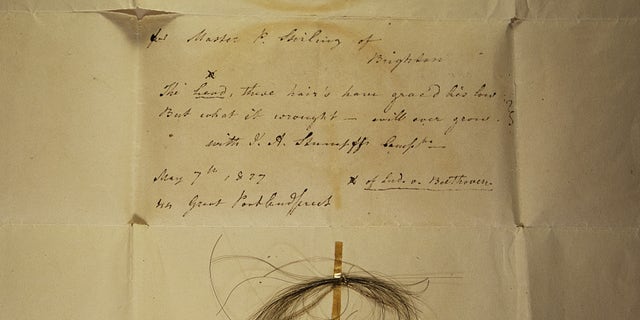 for Master P. of
Brighton
x
The head, these hair's have grac'd lies low
But what it wrought — will ever grow.
with J. A. Stumpff's Compts.
May 7th 1827
x of Lud. v. Beethoven.
44 Great Portland street